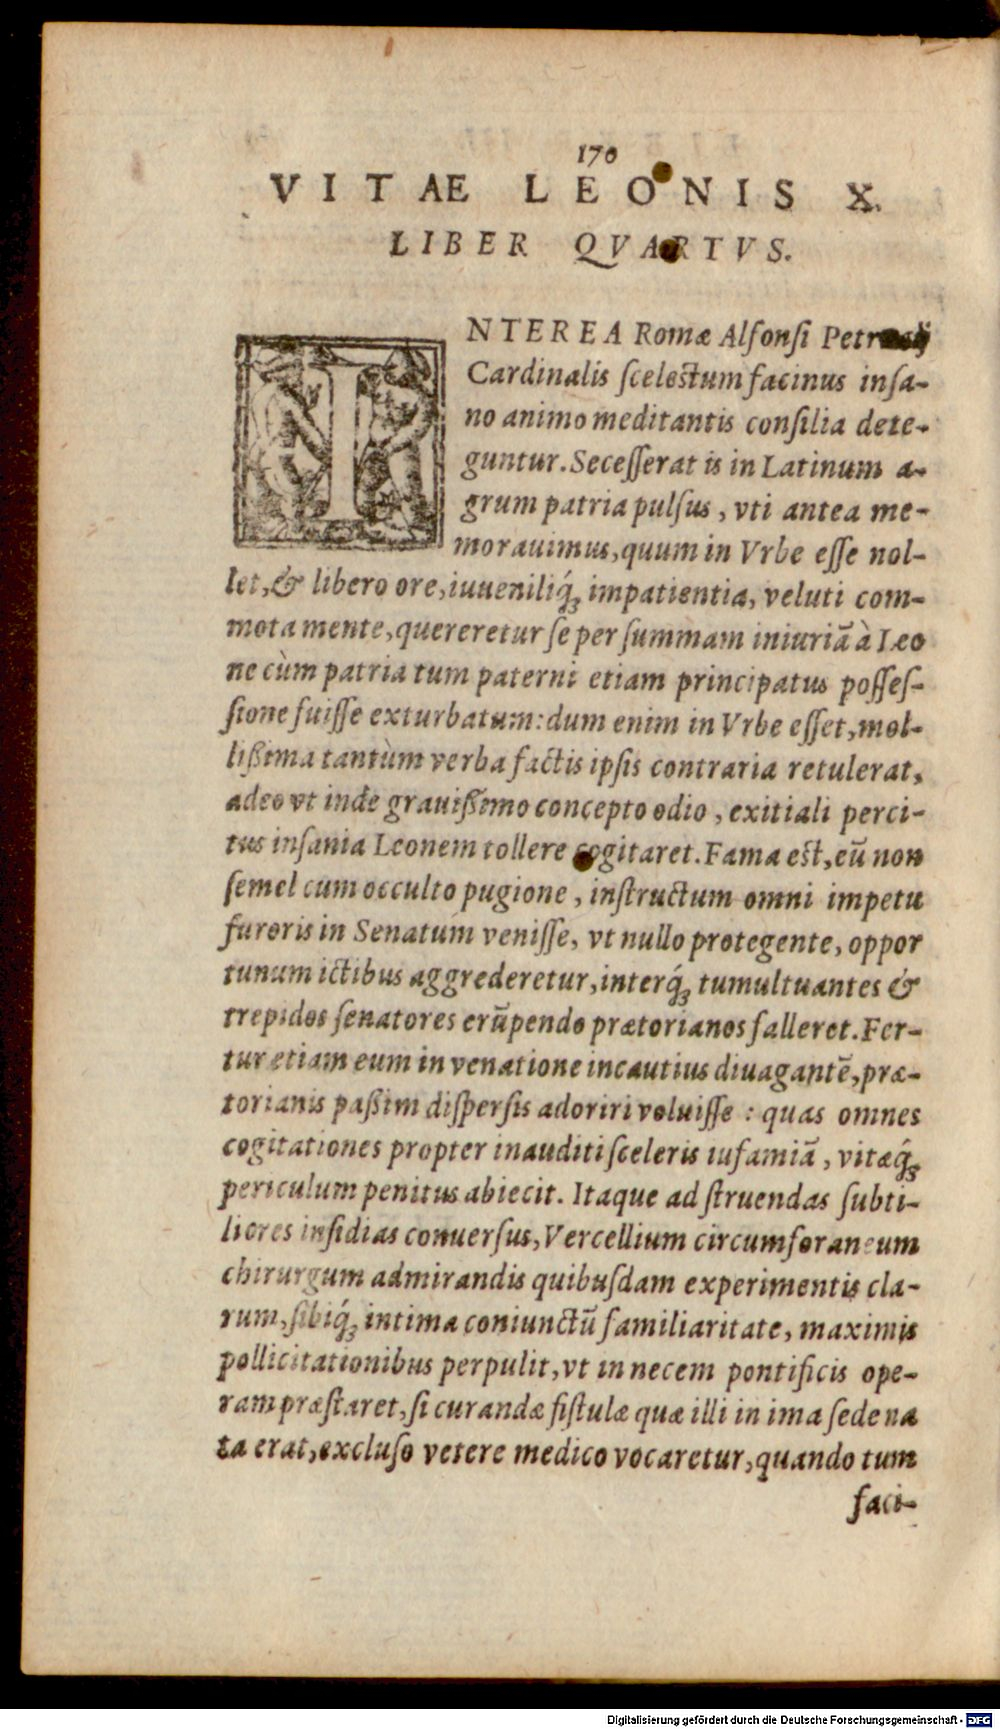 170
VITAE LEONIS X.
LIBER QVARTVS.
INTEREA Romæ Alfonsi Petrucij
Cardinalis ſceleſtum facinus inſa-
no animo meditantis conſilia dete-
guntur. Seceſſerat is in Latinum a-
grum patria pulſus, vti antea me-
morauimus, quum in Vrbe eſſe nol-
let, & libero ore, iuueniliq́ꝫ impatientia, veluti com-
mota mente, quereretur ſe per ſummam iniuriã à Leo
ne cùm patria tum paterni etiam principatus poſſeſ-
ſione fuiſſe exturbatum: dum enim in Vrbe eſſet, mol-
lißima tantùm verba factis ipſis contraria retulerat,
adeo vt inde grauißimo concepto odio, exitiali perci-
tus inſania Leonem tollere cogitaret. Fama eſt, eũ non
ſemel cum occulto pugione, inſtructum omni impetu
furoris in Senatum veniſſe, vt nullo protegente, oppor
tunum ictibus aggrederetur, interq́ꝫ tumultuantes &
trepidos ſenatores erũpendo prætorianos falleret. Fer-
tur etiam eum in venatione incautius diuagantẽ, præ-
torianis paßim diſperſis adoriri voluiſſe: quas omnes
cogitationes propter inauditi ſceleris iufamiã, vitæq́ꝫ
periculum penitus abiecit. Itaque ad ſtruendas ſubti-
liores inſidias conuerſus, Vercellium circumforaneum
chirurgum admirandis quibuſdam experimentis cla-
rum, ſibiq́ꝫ intima coniunctũ familiaritate, maximis
pollicitationibus perpulit, vt in necem pontificis ope-
ram præſtaret, ſi curandæ fiſtulæ quæ illi in ima ſede na
ta erat, excluſo vetere medico vocaretur, quando tum
faci-
Digitalisierung gefördert durch die Deutsche Forschungsgemeinschaft - DFG